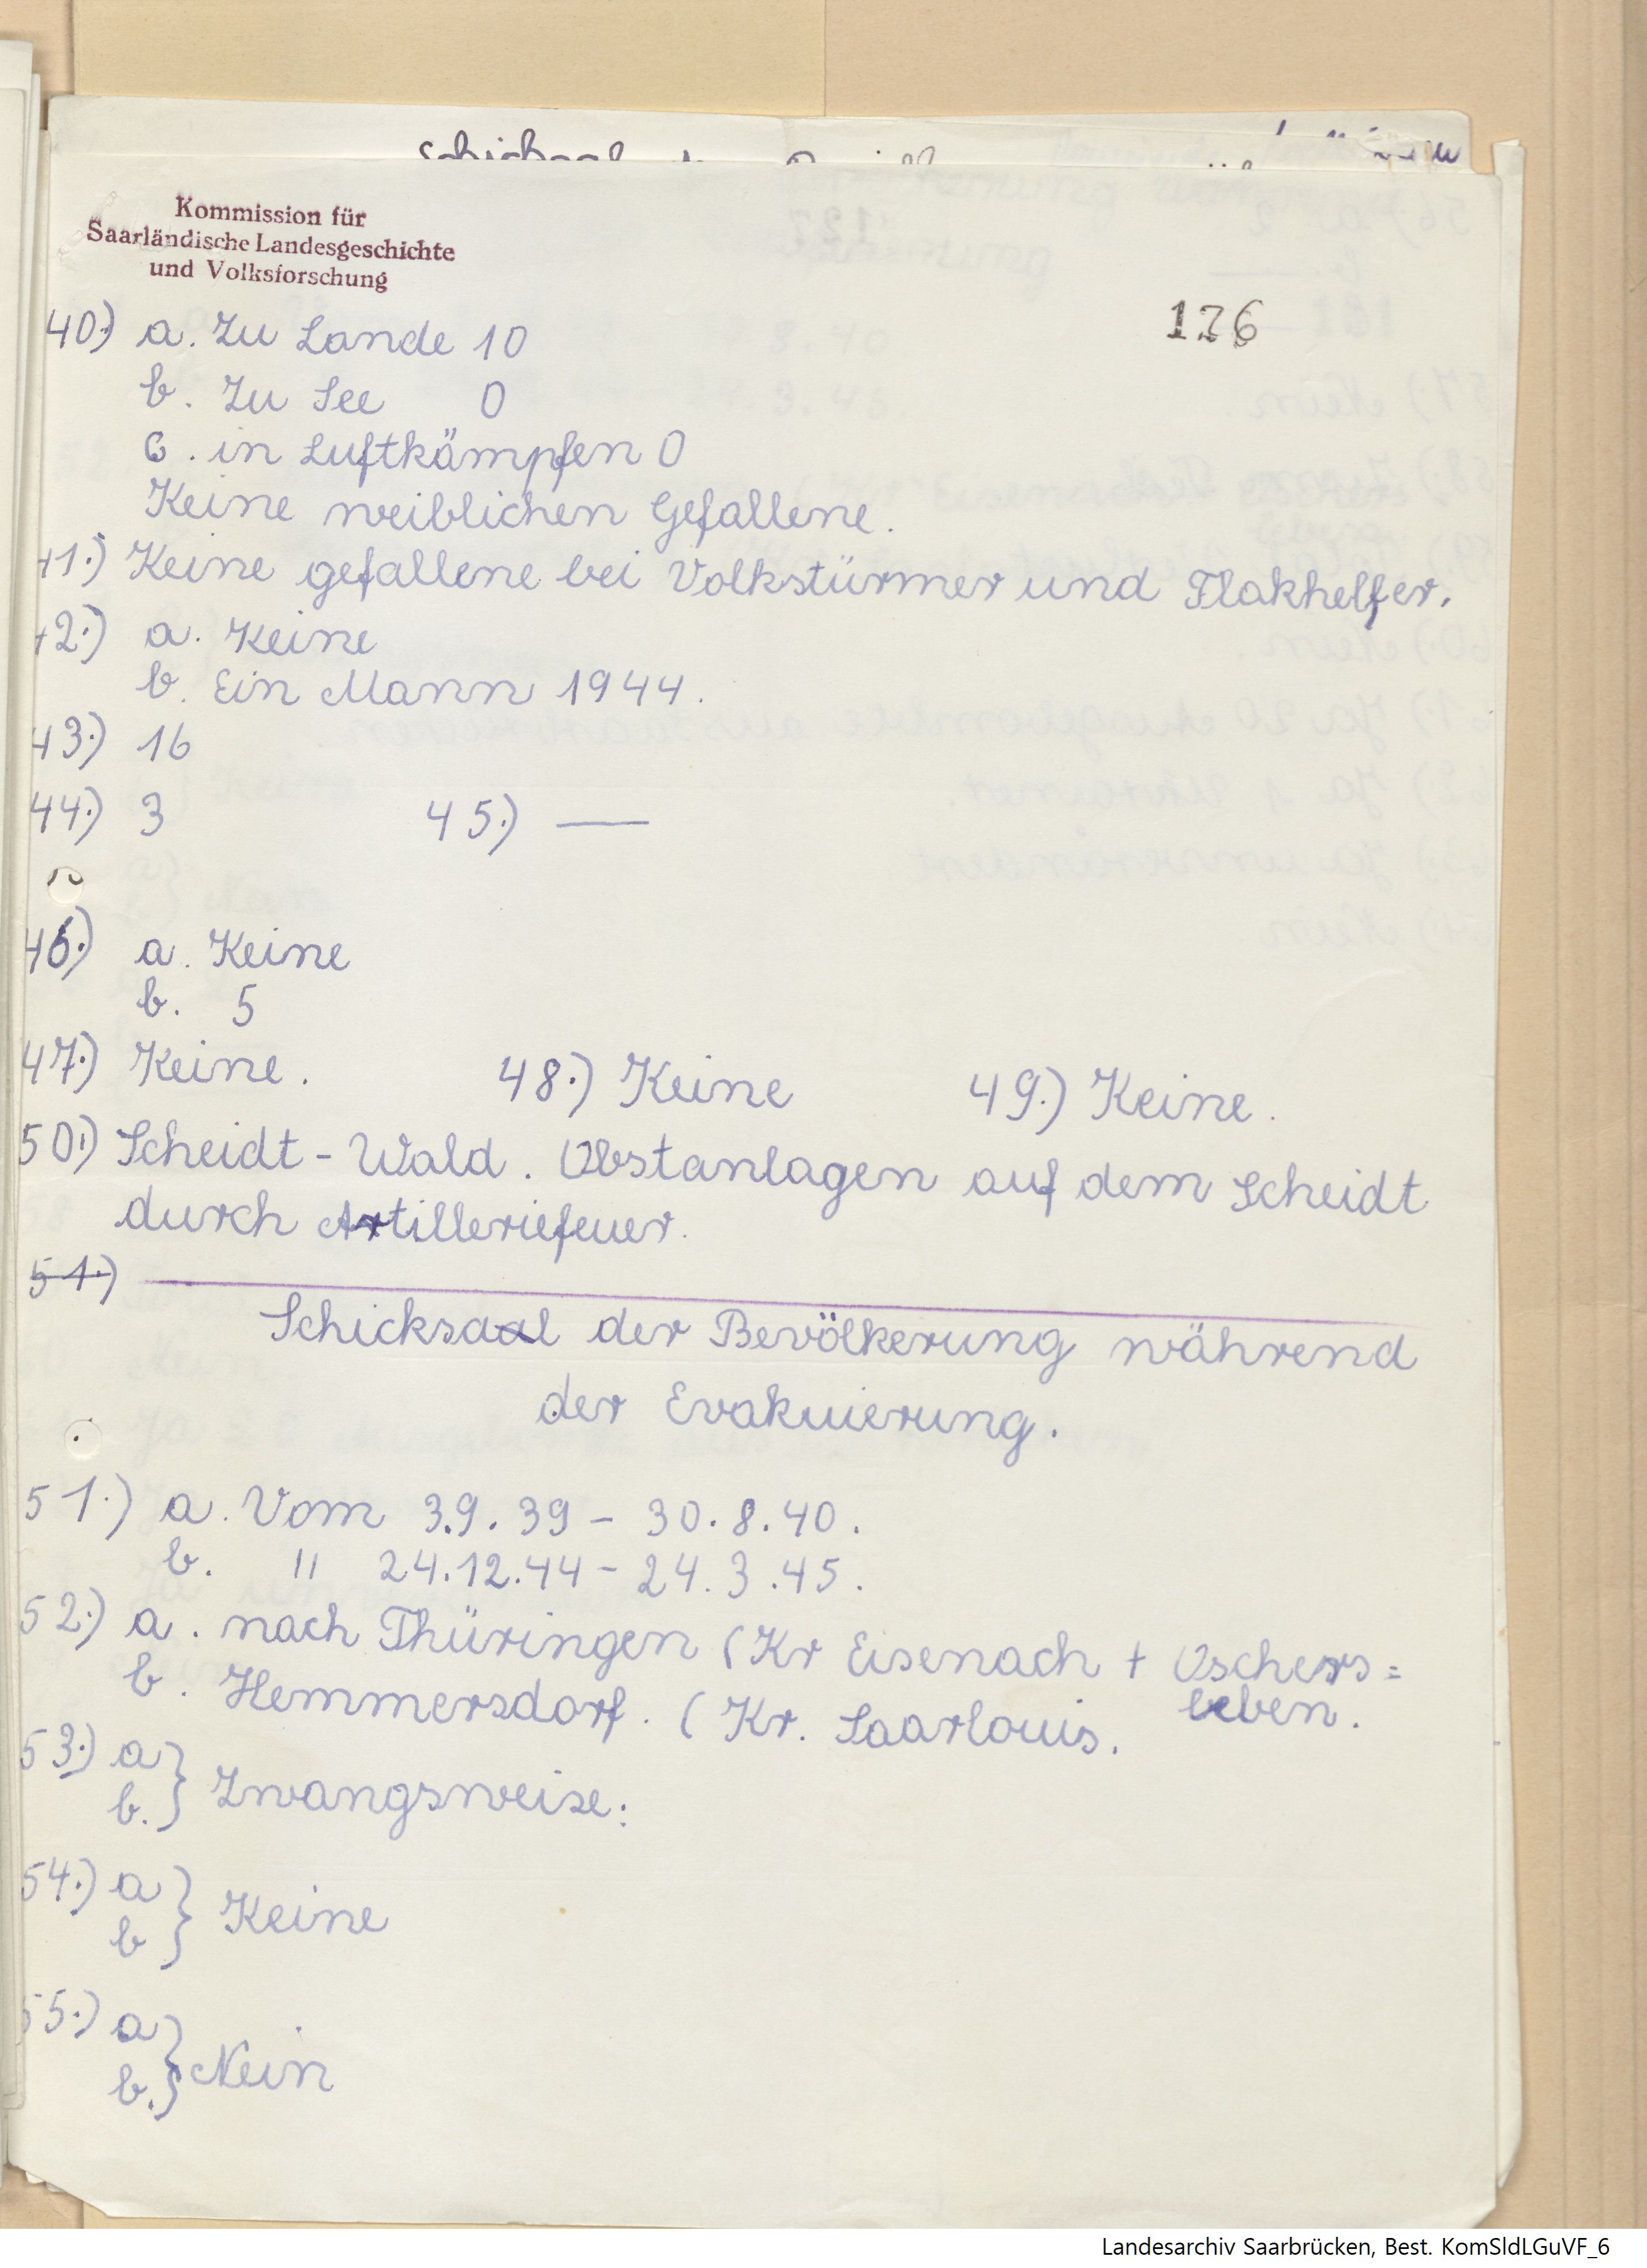 Kommission für
Saarländische Landesgeschichte
und Volksforschung
126
40.) a. Zu Lande 10
b. Zu See 0
c. in Luftkämpfen 0
Keine weiblichen Gefallene.
41.) Keine gefallene bei Volkstürmer und Flakhelfer.
42.) a. Keine
b. Ein Mann 1944.
43.) 16
44.) 3 45.) —
46.) a. Keine
b. 5
47.) Keine. 48.) Keine 49.) Keine.
50.) Scheidt-Wald. Obstanlagen auf dem Scheidt
durch Artilleriefeuer.
51.)
Schicksaal der Bevölkerung während
der Evakuierung.
51.) a. Vom 3.9.39 - 30.8.40.
b. " 24.12.44 - 24.3.45.
52.) a. nach Thüringen (Kr Eisenach + Oschers=
leben.
b. Hemmersdorf. (Kr. Saarlouis.
53.) a
b. } Zwangsweise:
54.) a
b } Keine
55.) a
b. } Nein
Landesarchiv Saarbrücken, Best. KomSldLGuVF_6